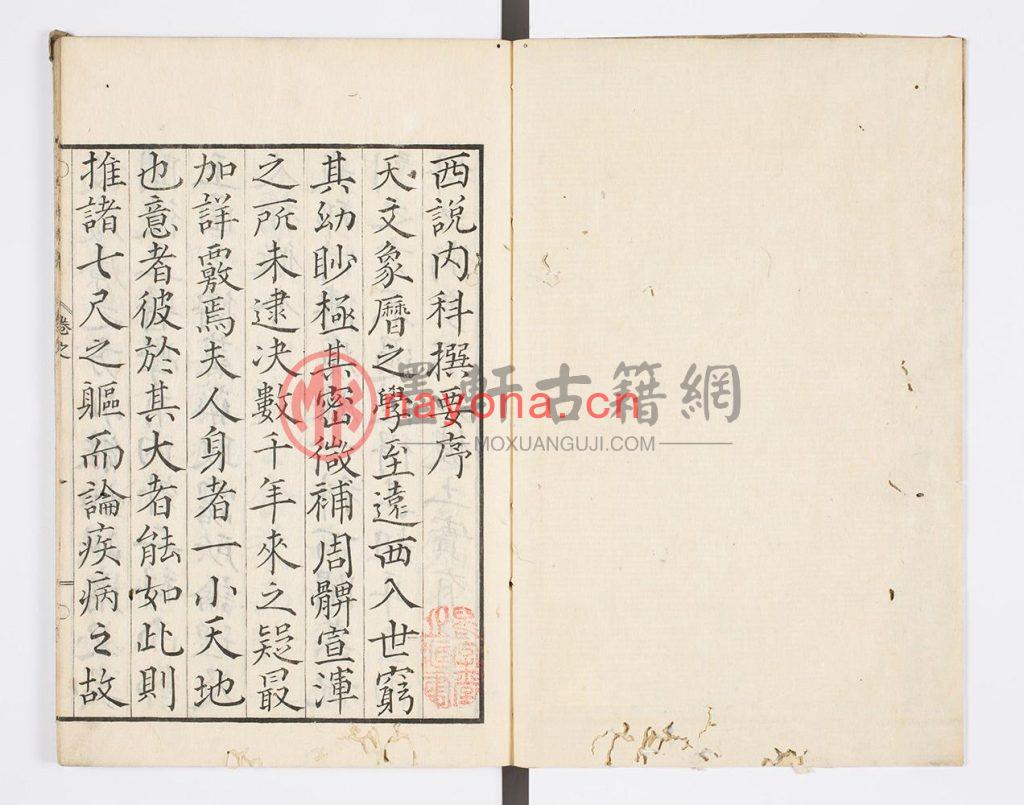 西說内科撰要序
天文象曆之學至遠西入世窮
其幼眇極其密微補周髀宣渾
之所未逮決數千年來之疑最
加詳覈焉夫人身者一小天地
也意者彼於其大者能如此則
推諸七尺之軀而論疾病之故
墨軒古籍網
nayona.cn
MOXUANGUJI.COM